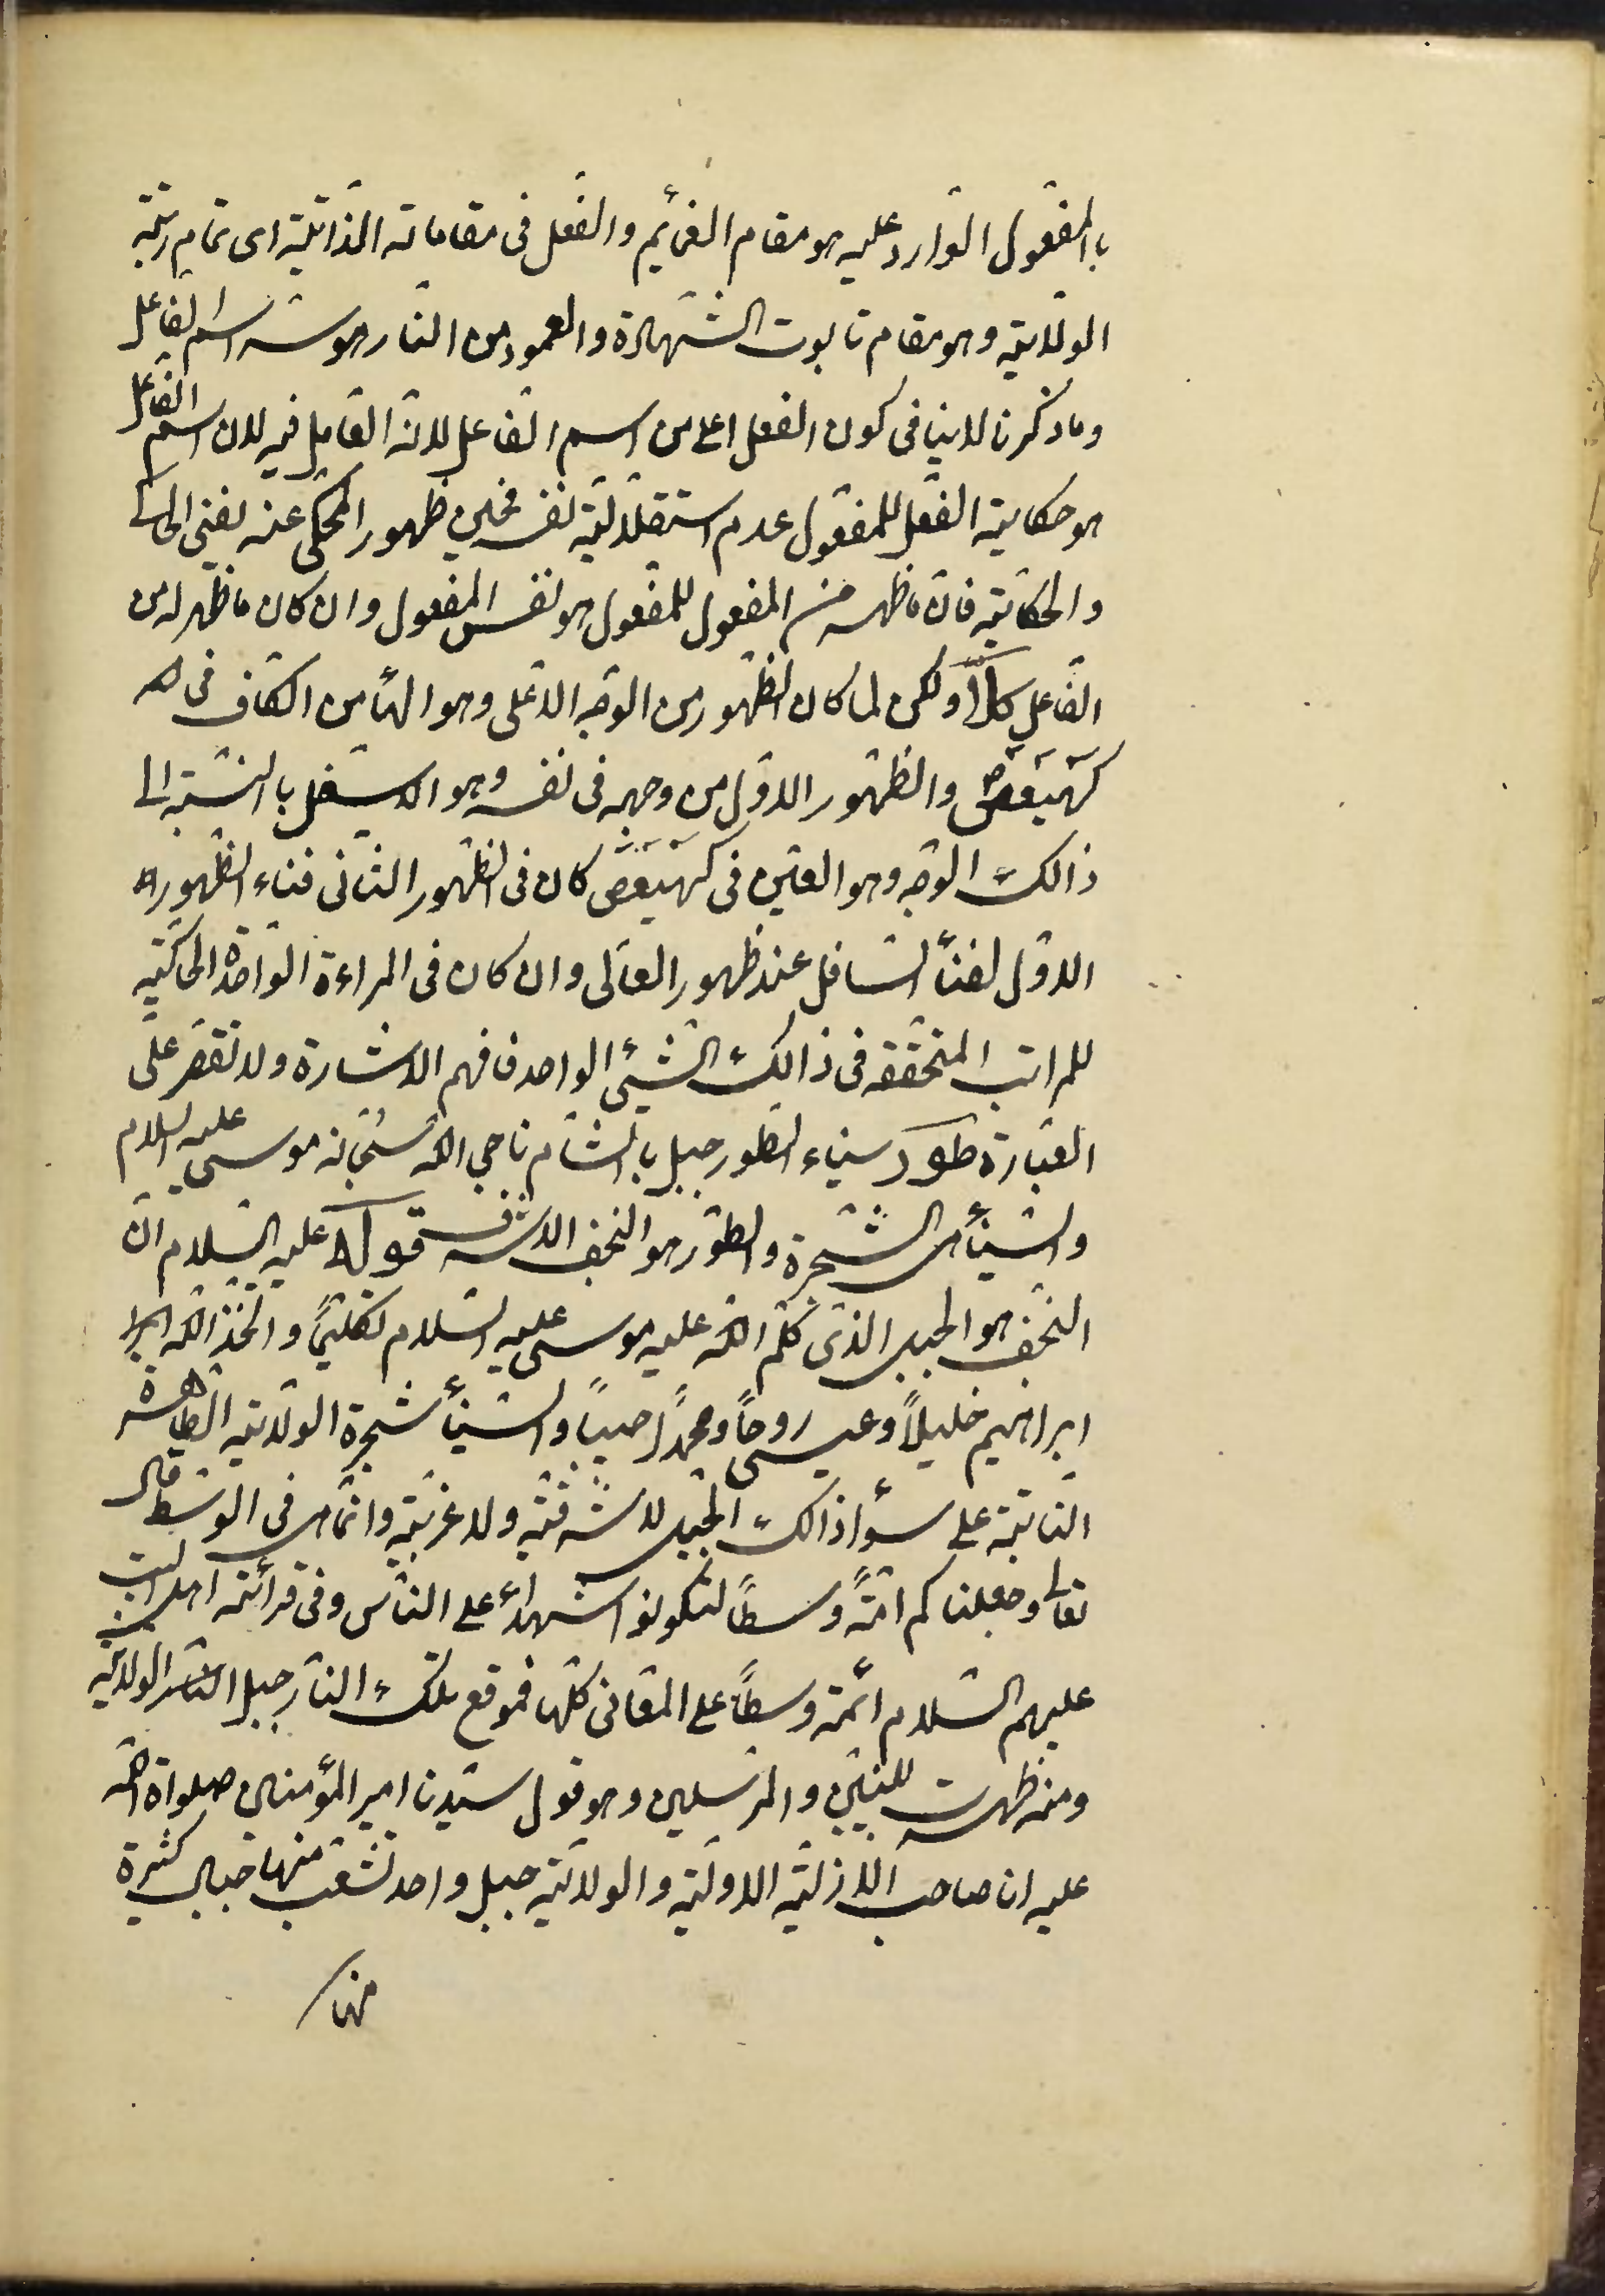 بالمفعول الوارد عليه هو مقام الغمائم والفعل فى مقاماته الذاتيّة اى تمام رتبة
الولايّة وهو مقام تابوت الشّهادة والعمود من النّار هو اسم الفاعل
وما ذكرنا لا ينافى كون الفعل اعلى من اسم الفاعل لانّه العامل فيه لان اسم الفاعل
هو حكاية الفعل للمفعول عدم استقلاليّة نفسه فحين ظهور المحكى عنه يفنى الحاكى
والحكاية فان ما ظهر من المفعول للمفعول هو نفس المفعول وان كان ما ظهر له من
الفاعل كلّا ولكن لما كان الظّهور من الوجه الاعلى وهو الهاء من الكاف فى
كهيعص والظّهور الاوّل من وجهه فى نفسه وهو الاسفل بالنّسبة الى
ذالك الوجه وهو العين فى كهيعص كان فى الظّهور الثّانى فناء الظّهور
الاوّل لفناء السّافل عند ظهور العالى وان كان فى المراءة الواحدة الحاكية
للمراتب المتحقّقه فى ذالك الشّىء الواحد فافهم الاشارة ولا تقتصر على
العبارة طور سيناء الطور جبل بالشّام ناجى الله سبحانه موسى عليه السلام
والسّيناء هى الشّجرة والطّور هو النجف الاشرف قوله عليه السّلام انّ
النّجف هو الجبل الذى كلّم الله عليه موسى عليه السّلام تكليمًا واتّخذ الله
ابراهيم خليلاً وعيسى روحاً ومحمّداً حبيباً والسّيناء شجرة الولاية الطّاهرة
النّابتة على سواء ذالك الجبل لا شرقيّة ولا غربيّة وانّما هى فى الوسط قال
تعالى وجعلناكم امّةً وسطاً لتكونوا شهداء على النّاس وفى قرائة اهل البيت
عليهم السّلام ائمّة وسطاً على المعانى كلّها فموقع تلك النّار جبل الولاية
ومنه ظهرت للنّبيين والمرسلين وهو قول سيّدنا امير المؤمنين صلواة الله
عليه انا صاحب الازليّة الاوليّة والولاية جبل واحد تشعّب منها جبال كثيرة
منها